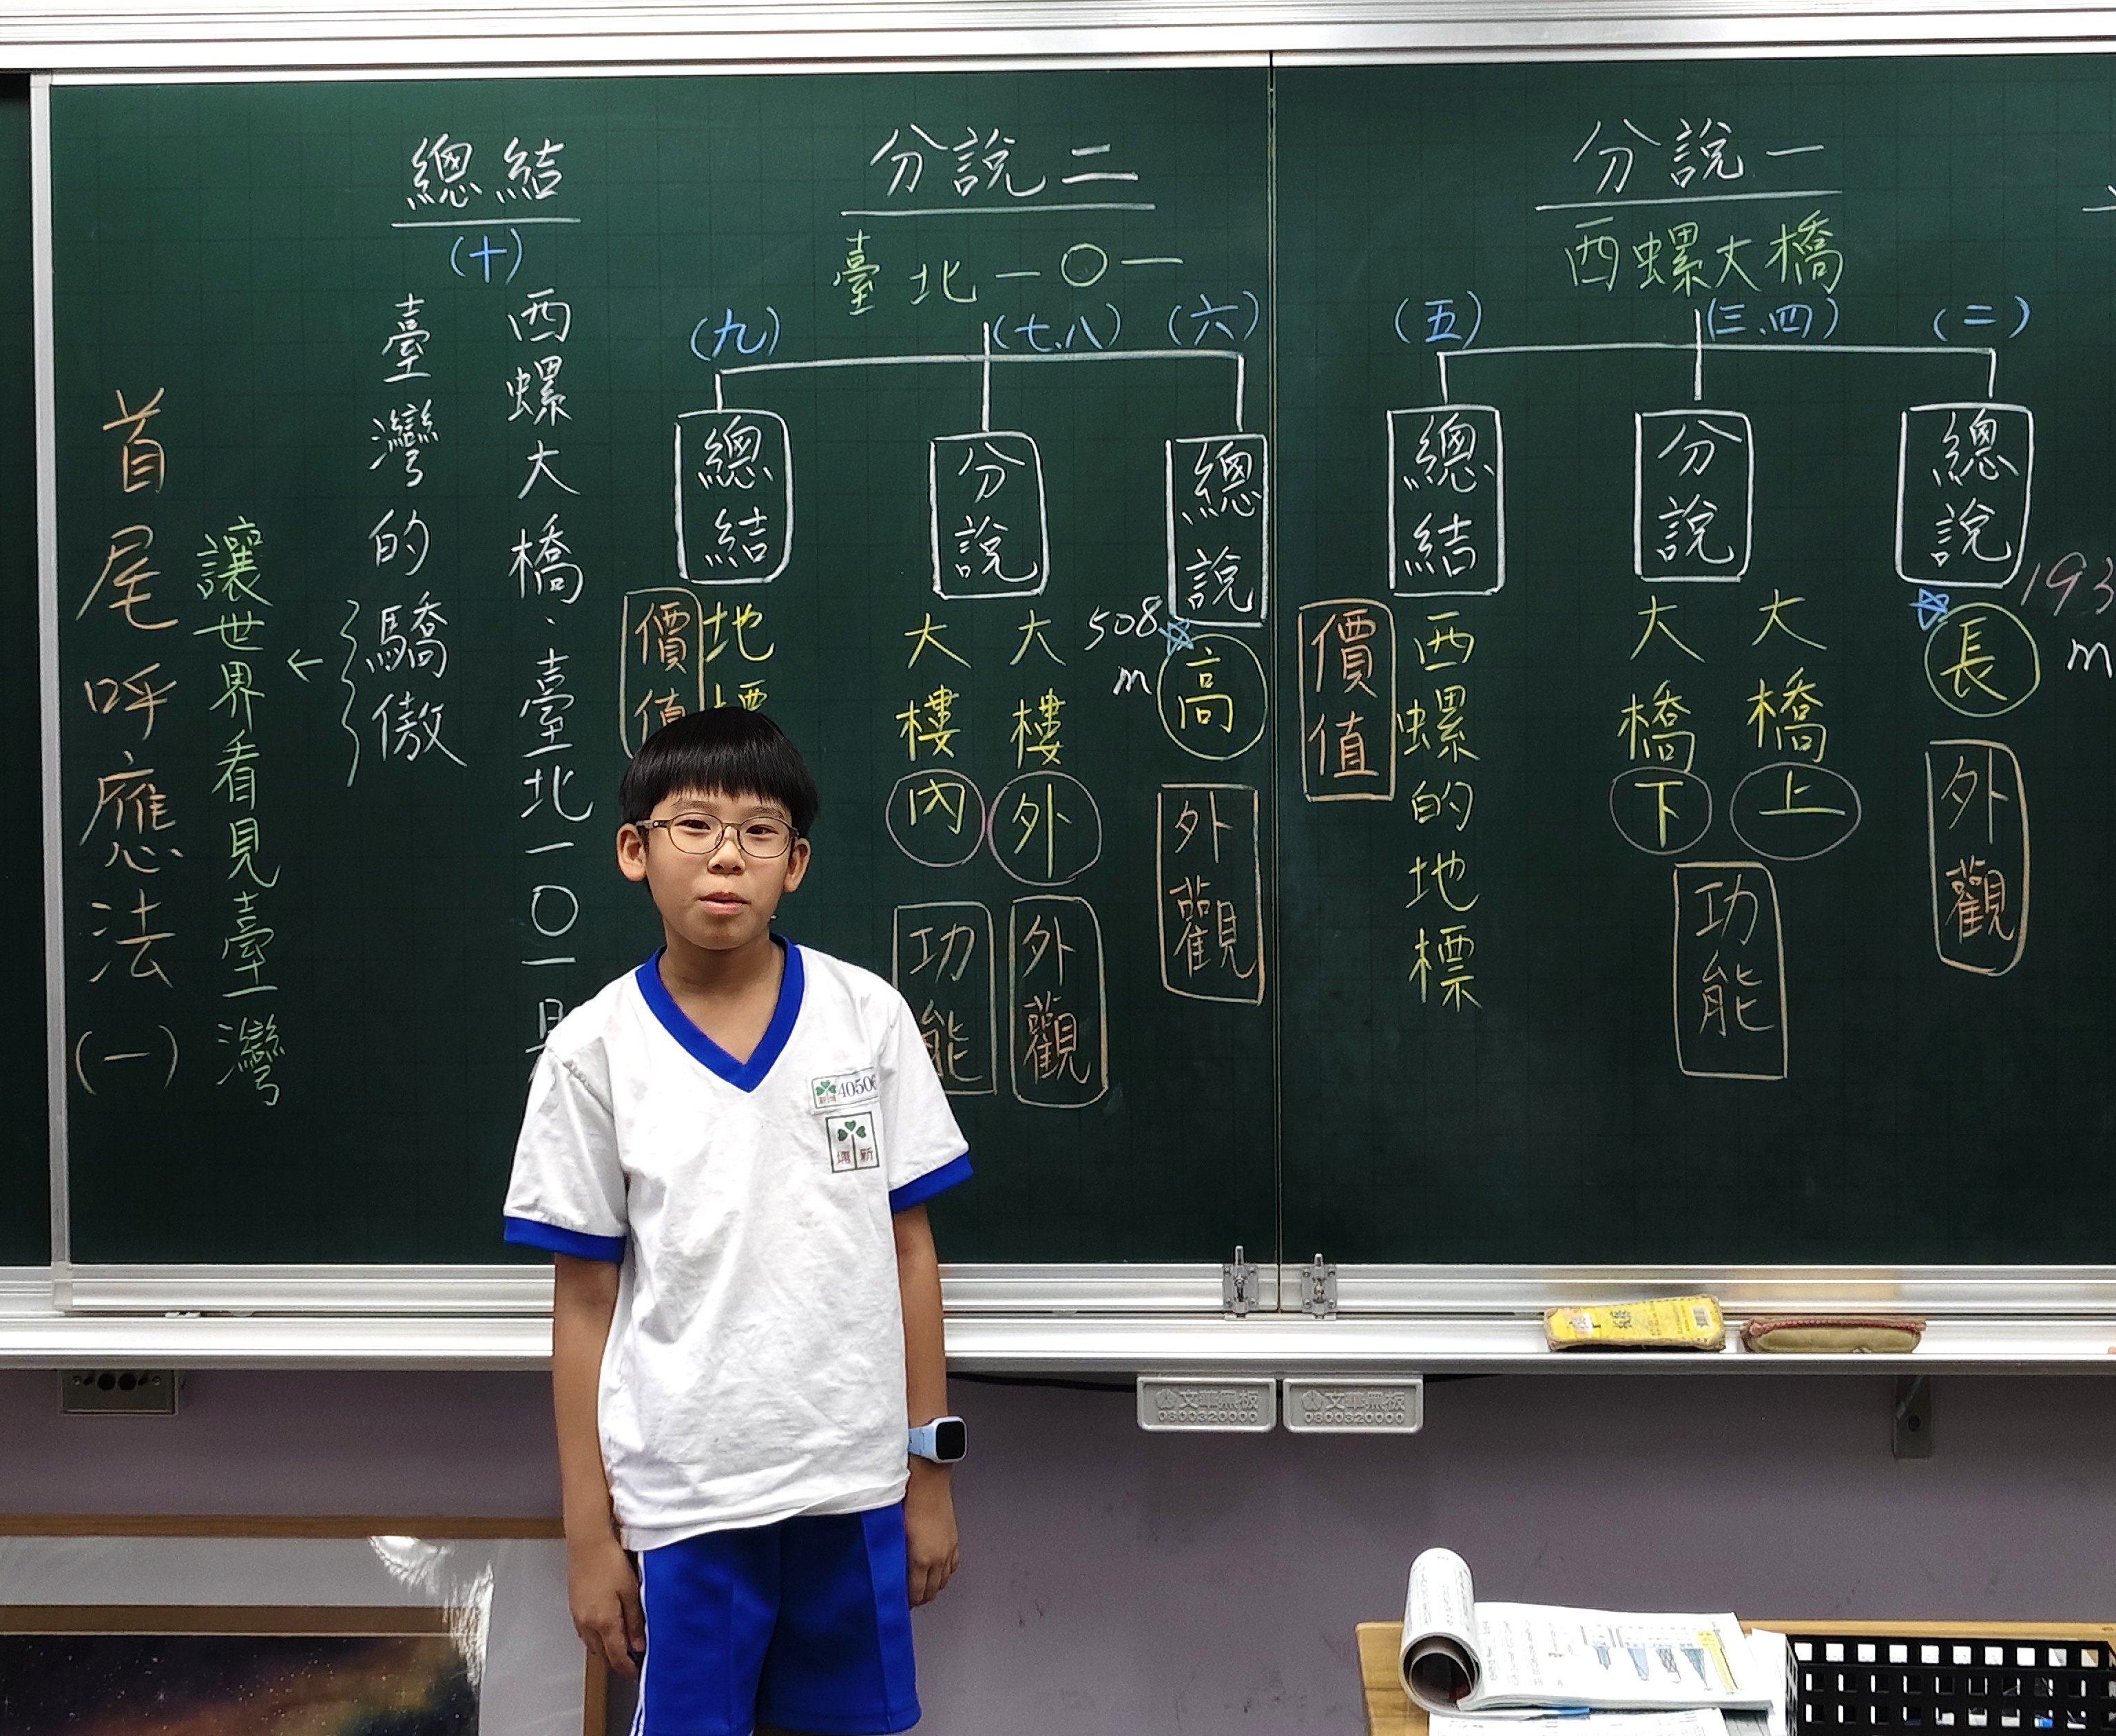 分說一
西螺大橋
(二)
總說
193
m
長
外觀
(三、四)
分說
大橋上
大橋下
功能
(五)
總結
西螺的地標
價值
分說二
臺北一〇一
(六)
總說
508
m
高
外觀
(七、八)
分說
大樓外
外觀
大樓內
功能
(九)
總結
地標
價值
總結
(十)
西螺大橋、臺北一〇一
臺灣的驕傲
←
讓世界看見臺灣
首尾呼應法(一)
4050
新埔
文華黑板
0800320000
文華黑板
0800320000